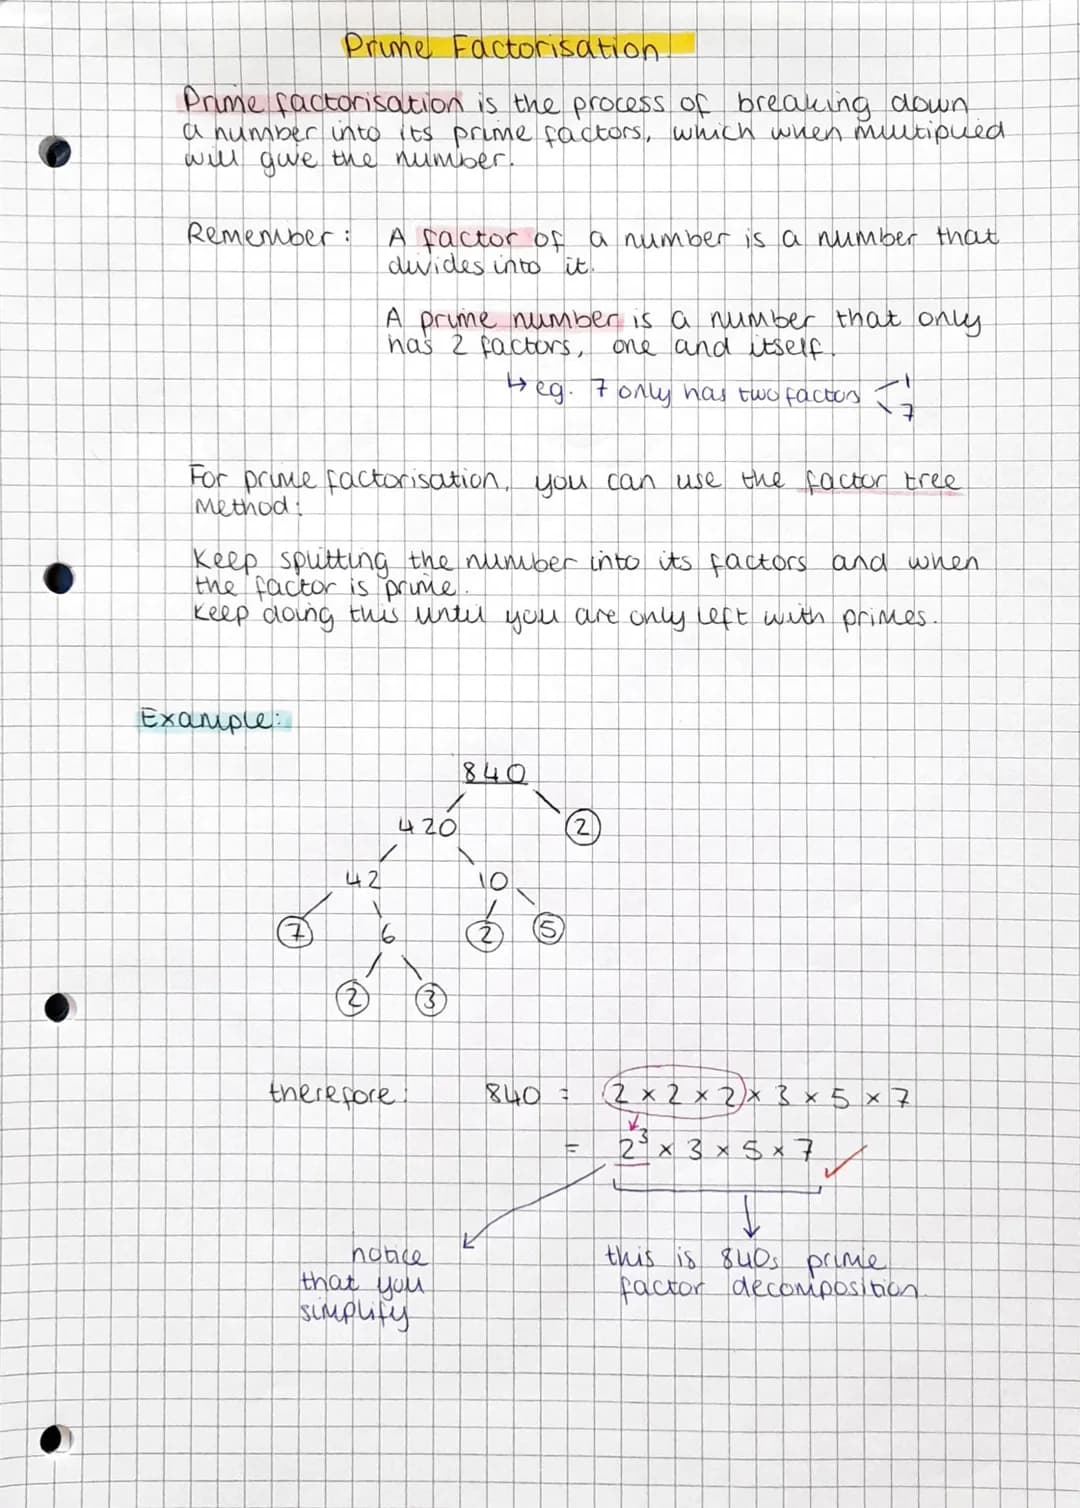 Prime Factorisation
Prime factorisation is the process of breaking down
a number into its prime factors, which when multiplied
will give the number.
Remember: A factor of a number is a number that
divides into it.
A prime number is a number that only
has 2 factors, one and itself.
↳ eg. 7 only has two factors < 1
7
For prime factorisation, you can use the factor tree
Method:
Keep splitting the number into its factors and when
the factor is prime.
Keep doing this until you are only left with primes.
Example:
840
420 2
42 10
7 6 2 5
2 3
therefore: 840 = 2 × 2 × 2 × 3 × 5 × 7
= 2³ × 3 × 5 × 7 ✓
notice
that you
simplify
this is 840s prime
factor decomposition.